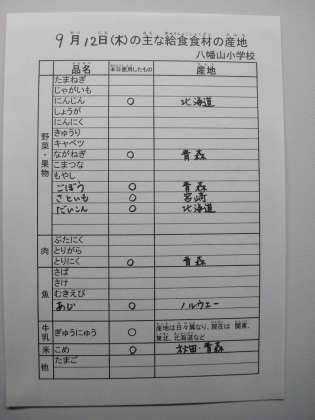 9月12日(木)の主な給食食材の産地
八幡山小学校
品名 本日使用したもの 産地
野菜・果物
たまねぎ
じゃがいも
にんじん ○ 北海道
しょうが
にんにく
きゅうり
キャベツ
ながねぎ ○ 青森
こまつな
もやし
ごぼう ○ 青森
さといも ○ 宮崎
だいこん ○ 北海道
肉
ぶたにく
とりがら
とりにく ○ 青森
魚
さば
さけ
むきえび
あじ ○ ノルウェー
牛乳 ぎゅうにゅう ○ 産地は日々異なり、現在は 関東、
東北、北海道など
米 こめ ○ 秋田・青森
他 たまご